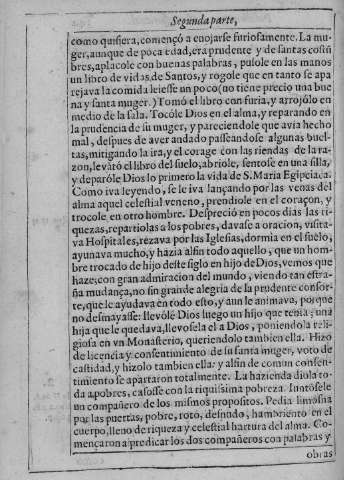 Segunda parte,
como quisiera, començò a enojarse furiosamente. La mu-
ger, aunque de poca edad, era prudente y de santas costũ
bres, aplacole con buenas palabras, pusole en las manos
un libro de vidas de Santos, y rogole que en tanto se apa
rejava la comida leiesse un poco (no tiene precio una bue
na y santa muger.) Tomó el libro con furia, y arrojólo en
medio de la sala. Tocóle Dios en el alma, y reparando en
la prudencia de su muger, y pareciendole que avia hecho
mal, despues de aver andado passeandose algunas buel-
tas, mitigando la ira, y el corage con las riendas de la ra-
zon, levátó el libro del suelo, abriole, sentose en una silla,
y deparóle Dios lo primero la vida de S. Maria Egipciaca.
Como iva leyendo, se le iva lançando por las venas del
alma aquel celestial veneno, prendiole en el coraçon, y
trocole en otro hombre. Despreció en pocos dias las ri-
quezas, repartiolas a los pobres, davase a oracion, visita-
va Hospitales, rezava por las Iglesias, dormia en el suelo,
ayunava mucho, y hazia alfin todo aquello, que un hom-
bre trocado de hijo deste siglo en hijo de Dios, vemos que
haze; con gran admiracion del mundo, viendo tan estra-
ña mudança, no sin grande alegria de la prudente consor-
te, que le ayudava en todo esto, y aun le animava, porque
no desmayasse: llevóle Dios luego un hijo que tenia; una
hija que le quedava, llevosela el a Dios, poniendola reli-
giosa en vn Monasterio, queriendolo tambien ella. Hizo
de licencia y consentimiento de su santa muger, voto de
castidad, y hizolo tambien ella: y alfin de comun consen-
timiento se apartaron totalmente. La hazienda diola to-
da a pobres, casosse con la riquissima pobreza. Iuntósele
un compañero de los mismos propositos. Pedia limosna
por las puertas, pobre, roto, desnudo, hambriento en el
cuerpo, lleno de riqueza y celestial hartura del alma. Co-
mençaron a predicar los dos compañeros con palabras y
obras